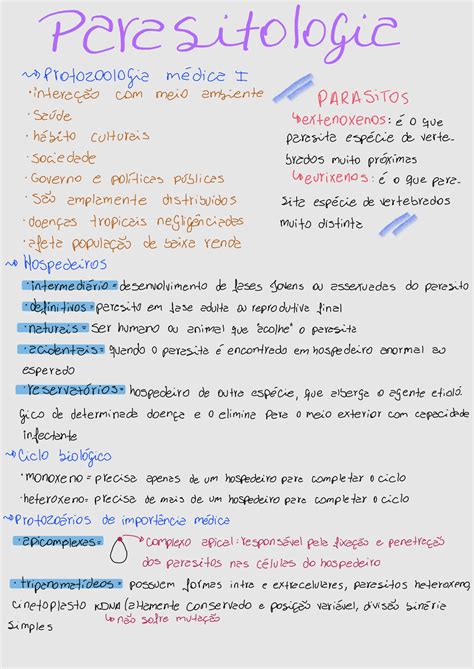 Parasitologia
Protozoologia médica I
· interação com meio ambiente
· saúde
· hábito culturais
· sociedade
· Governo e políticas públicas
· são amplamente distribuídos
· doenças tropicais negligênciadas
· afeta população de baixa renda
PARASITOS
extenoxenos: é o que
parasita espécie de verte-
brados muito próximas
eurixenos: é o que para-
sita espécie de vertebrados
muito distinta
Hospedeiros
· intermediário = desenvolvimento de fases jovens ou assexuadas do parasito
· definitivos = parasito em fase adulta ou reprodutiva final
· naturais = ser humano ou animal que "acolhe" o parasita
· acidentais = quando o parasita é encontrado em hospedeiro anormal ao
esperado
· reservatórios = hospedeiro de outra espécie, que alberga o agente etioló-
gico de determinada doença e o elimina para o meio exterior com capacidade
infectante
Ciclo biológico
· monoxeno = precisa apenas de um hospedeiro para completar o ciclo
· heteroxeno = precisa de mais de um hospedeiro para completar o ciclo
Protozoários de importância médica
· apicomplexas =
Complexo apical: responsável pela fixação e penetração
dos parasitos nas células do hospedeiro
· tripanomatídeos = possuem formas intra e extracelulares, parasitos heteroxeno,
cinetoplasto KDNA (altamente conservado e posição variável, divisão binária
simples
não sofre mutação